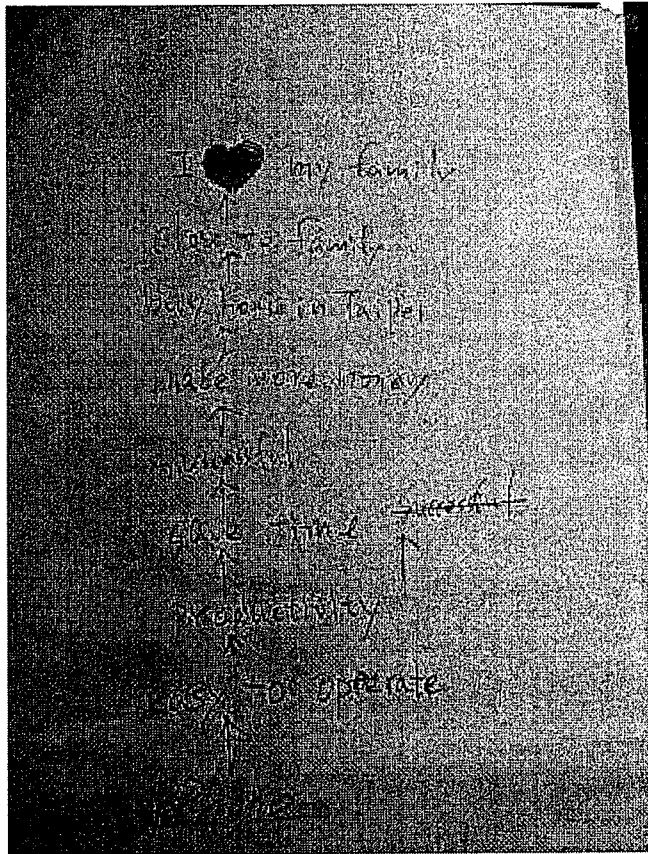 I ♥ my family
Close to family
Buy home in Taipei
make more money
successful
save time
successful
productivity
easy to operate